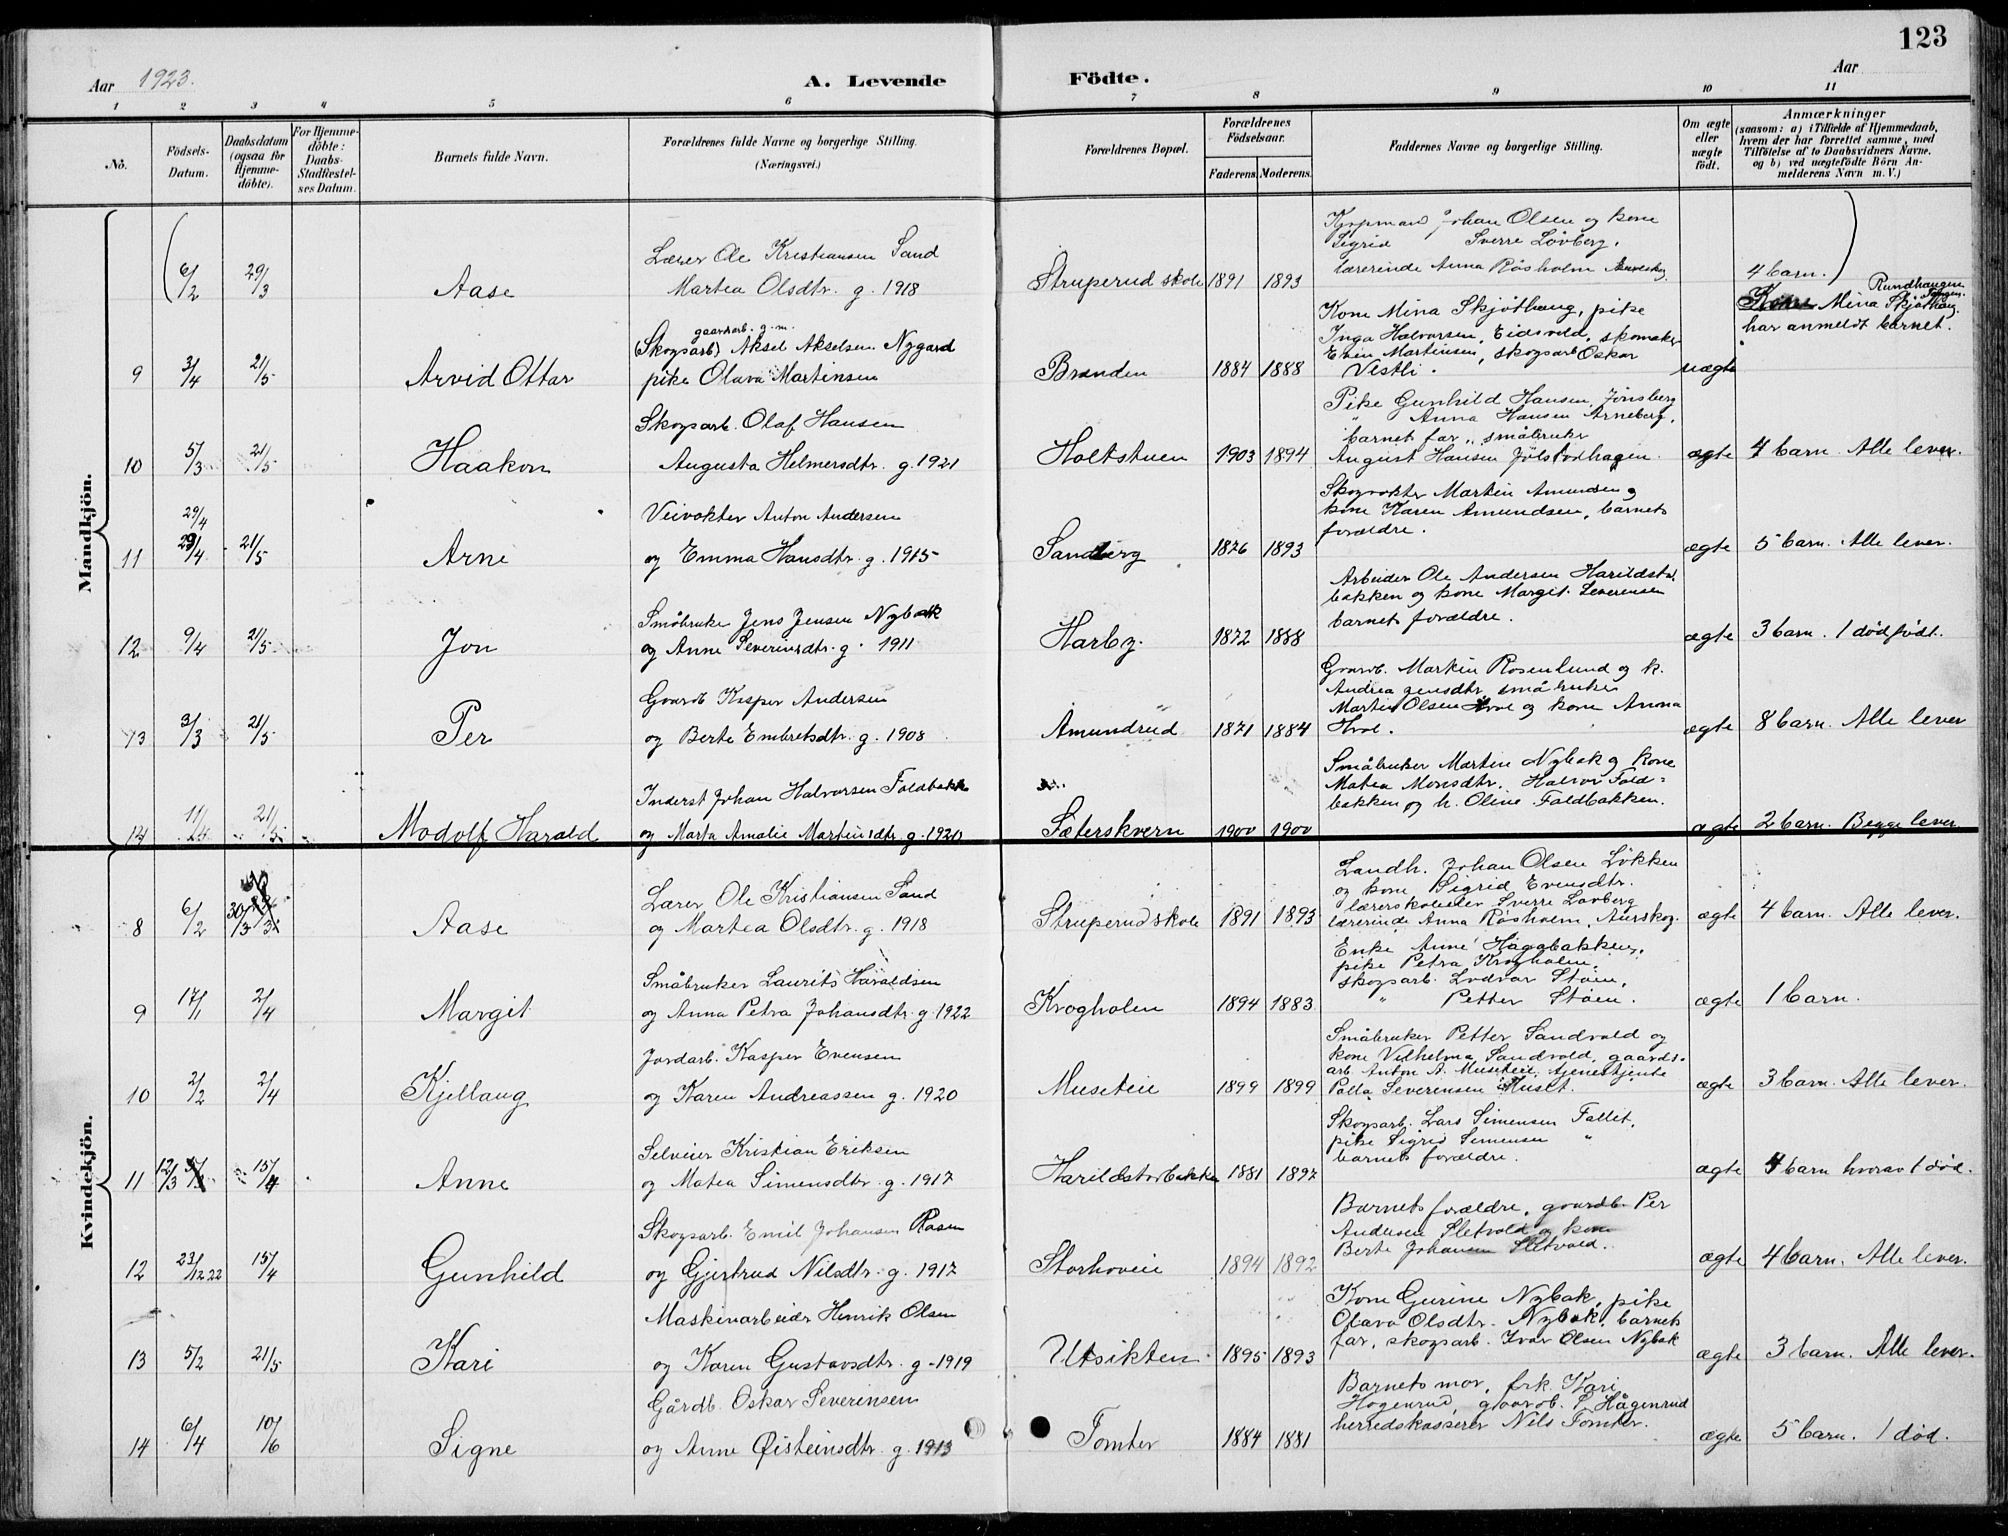 123
Aar 1923.
A. Levende Födte.
Aar
1 2 3 4 5 6 7 8 9 10 11
No.
Födsels-Datum.
Daabsdatum (ogsaa for Hjemme-döbte).
For Hjemme-döbte: Daabs-Stadfæstel-ses Datum.
Barnets fulde Navn.
Forældrenes fulde Navne og borgerlige Stilling. (Næringsvei.)
Forældrenes Bopæl.
Forældrenes Födselsaar.
Faderens. Moderens.
Faddernes Navne og borgerlige Stilling.
Om ægte eller uægte födt.
Anmærkninger
(saasom: a) i Tilfælde af Hjemmedaab,
hvem der har forrettet samme, med
Tilföielse af to Daabsvidners Navne,
og b) ved uægtefödte Börn An-
melderens Navn m. V.)
Mandkjön.
Kjøpmand Johan Olsen og kone
Sigrid Sverre Lövberg,
Lærer Ole Kristiansen Sand
lærerinde Anna Røsholm
6/2 29/3 Aase Martea Olsdtr. g. 1918 Struperud skole 1891 1893 4 barn.
Rundhaugen
Kone Mina Skjöthaug, pike
Kone Mina Skjöthaug
gaardarb. g.m.
(Skogsarb) Aksel Akselsen Nygard
Inga Halvorsen, Eidsvold, skomaker
har anmeldt barnet.
Even Martinsen, skogsarb Oskar
9 3/4 21/5 Arvid Ottar pike Olava Martensen Brænden 1884 1888 Vestli. uægte
Pike Gunhild Hansen, Jönsberg
Skogsarb. Olaf Hansen
" Anna Hansen Arneberg,
barnets far, småbruker
10 5/3 21/5 Haakon Augusta Helmersdtr. g. 1921 Holtstuen 1903 1894 August Hansen Jølstadhagen. ægte 4 barn. Alle lever.
Skogvokter Martin Amundsen og
29/4 Veivokter Anton Andersen
kone Karen Amundsen, barnets
forældre.
11 29/4 21/5 Arne og Emma Hansdtr. g. 1915 Sandberg 1876 1893 ægte 5 barn. Alle lever.
Arbeider Ole Andersen Harildsta-
bakken og kone Margit Severensen
Småbruker Jens Jensen Nybakk
barnets forældre.
12 9/4 21/5 Jon og Anne Severinsdtr. g. 1911 Harby. 1872 1888 ægte 3 barn. 1 dödfödt.
Gaardb. Martin Rosenlund og k.
Gaardb Kasper Andersen
Andrea Jensdtr, småbruker
Martin Olsen Hvol og kone Anna
13 3/3 21/5 Per og Berte Embretsdtr. g. 1908 Amundrud 1871 1884 Hvol. ægte 8 barn. Alle lever
Småbruker Martin Nybak og kone
Inderst Johan Halvorsen Foldbakk
Matea Monsdtr, Halvor Fold-
bakken og h. Oline Foldbakken.
14 11/4 21/5 Modolf Harald og Marta Amalie Martinsdtr. g. 1920 Sæterskvern 1900 1900 ægte 2 barn. Begge lever
Kvindekjön.
Landh. Johan Olsen Lökken
og kone Sigrid Evensdtr.
Lærer Ole Kristiansen Sand
lærerskoleelev Sverre Lovberg
8 6/2 30/3 Aase og Martea Olsdtr. g. 1918 Struperud skole 1891 1893 lærerinde Anna Røsholm, Aurskog. ægte 4 barn. Alle lever.
Enke Anne Haggbakken,
pike Petra Krogholen,
Småbruker Laurits Haraldsen
skogsarb. Lodvar Stöen,
9 17/1 2/4 Margit og Anna Petra Johansdtr. g. 1922 Krogholen 1894 1883 " Petter Stöen. ægte 1 barn.
Småbruker Petter Sandvold og
Jordarb. Kasper Evensen
kone Vilhelma Sandvold, gaards-
arb. Anton A. Museteie, tjenestjente
10 2/2 2/4 Kjellaug og Karen Andreassen g. 1920 Museteie 1899 1899 Palla Severensen Muset. ægte 3 barn. Alle lever.
Skogsarb. Lars Simensen Fallet,
Selveier Kristian Eriksen
pike Sigrid Simensen "
barnets forældre.
11 12/3 15/4 Anne og Matea Simensdtr. g. 1917 Harildstadbakken 1881 1897 ægte 4 barn hvorav 1 död.
Barnets forældre, gaardb. Per
Skogsarb. Emil Johansen Rasen
Andersen Sletvold og kone
Berte Johansen Sletvold.
12 23/12 22 15/4 Gunhild og Gjertrud Nilsdtr. g. 1917 Storhoveie 1894 1892 ægte 4 barn. Alle lever.
Kone Gurine Nybak, pike
Maskinarbeider Henrik Olsen
Olava Olsdtr. Nybak, barnets
far, skogsarb. Ivar Olsen Nybak
13 5/2 21/5 Kari og Karen Gustavsdtr. g. 1919 Utsikten 1895 1893 ægte 3 barn. Alle lever.
Barnets mor, frk. Kari
Gårdb. Oskar Severensen
Hogenrud, gaardb. P Hågenrud
herredskasserer Nils Tomter.
14 6/4 10/6 Signe og Anne Øisteinsdtr. g. 1913 Tomter 1884 1881 ægte 5 barn. 1 död.